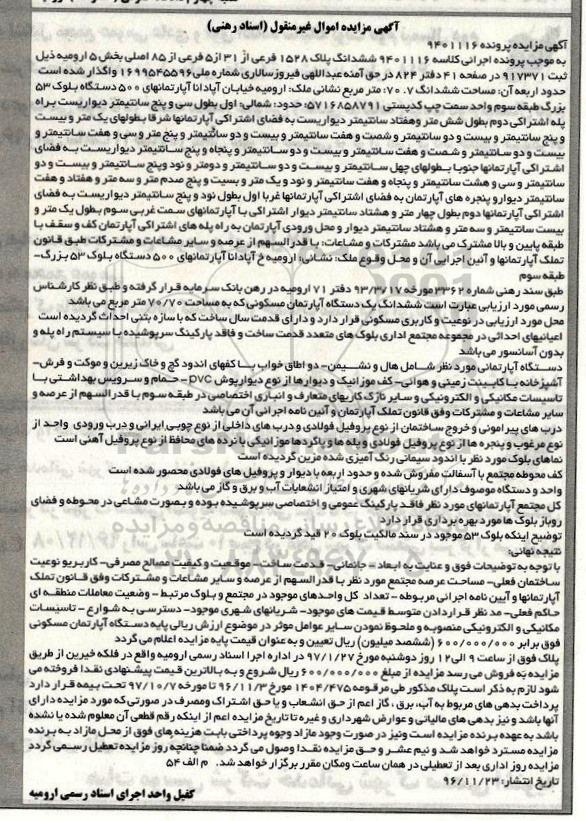 آگهی مزایده اموال غیرمنقول (اسناد رهنی)
آگهی مزایده پرونده ۹۴۰۱۱۱۶
به موجب پرونده اجرائی کلاسه ۹۴۰۱۱۱۶ ششدانگ پلاک ۱۵۲۸ فرعی از ۳۱ از۵ فرعی از ۸۵ اصلی بخش ۵ ارومیه ذیل
ثبت ۹۱۷۳۷۱ در صفحه ۴۱ دفتر ۸۲۴ در حق آمنه عبداللهی فیروزسالاری شماره ملی ۱۶۹۹۵۴۵۵۹۶ واگذار شده است
حدود اربعه آن: مساحت ششدانگ ۷۰.۷ متر مربع نشانی ملک: ارومیه خیابان آپادانا آپارتمانهای ۵۰۰ دستگاه بلوک ۵۳
بزرگ طبقه سوم واحد سمت چپ کدپستی ۵۷۱۶۸۵۸۷۹۱: حدود: شمالی: اول بطول سی و پنج سانتیمتر دیواریست براه
پله اشتراکی دوم بطول شش متر وهفتاد سانتیمتر دیواریست به فضای اشتراکی آپارتمانها شرقا بطولهای یک متر و بیست
و پنج سانتیمتر و بیست و دو سانتیمتر و شصت و هفت سانتیمتر و بیست و دو سانتیمتر و پنج متر و سی و هفت سانتیمتر و
بیست و دو سانتیمتر و شصت و هفت سانتیمتر و بیست و دو سانتیمتر و پنجاه و پنج سانتیمتر دیواریست به فضای
اشتراکی آپارتمانها جنوبا بطولهای چهل سانتیمتر و بیست و دو سانتیمتر و دومتر و نود وپنج سانتیمتر و بیست و دو
سانتیمتر و سی و هشت سانتیمتر و پنجاه و هفت سانتیمتر و نود و یک متر و بیست و پنج صدم متر و سه متر و هفتاد و هفت
سانتیمتر دیوار و پنجره های آپارتمان به فضای اشتراکی آپارتمانها غربا اول بطول نود و پنج سانتیمتر دیواریست به فضای
اشتراکی آپارتمانها دوم بطول چهار متر و هشتاد سانتیمتر دیوار اشتراکی با آپارتمانهای سمت غربی سوم بطول یک متر و
بیست سانتیمتر و سه متر و هشتاد سانتیمتر دیوار و محل ورودی آپارتمان به راه پله های اشتراکی آپارتمان کف و سقف با
طبقه پایین و بالا مشترک می باشد مشترکات و مشاعات: با قدرالسهم از عرصه و سایر مشاعات و مشترکات طبق قانون
تملک آپارتمانها و آئین اجرایی آن و محل وقوع ملک: نشانی: ارومیه خ آپادانا آپارتمانهای ۵۰۰ دستگاه بلوک ۵۳ بزرگ-
طبقه سوم
طبق سند رهنی شماره ۳۳۶۲ مورخه ۹۳/۳/۱۷ دفتر ۷۱ ارومیه در رهن بانک سرمایه قرار گرفته و طبق نظر کارشناس
رسمی مورد ارزیابی عبارت است ششدانگ یک دستگاه آپارتمان مسکونی که به مساحت ۷۰/۷۰ متر مربع می باشد
محل مورد ارزیابی در نوعیت و کاربری مسکونی قرار دارد و دارای قدمت سال ساخت که با سازه بتنی احداث گردیده است
اعیانیهای احداثی در مجموعه مجتمع اداری بلوک های متعدد قدمت ساخت و فاقد پارکینگ سرپوشیده با سیستم راه پله و
بدون آسانسور می باشد
دستگاه آپارتمانی مورد نظر شامل هال و نشیمن- دو اطاق خواب با کفهای اندود گچ و خاک زیرین و موکت و فرش-
آشپزخانه با کابینت زمینی و هوائی- کف موزائیک و دیوارها از نوع دیوارپوش pvc - حمام و سرویس بهداشتی با
تاسیسات مکانیکی و الکترونیکی و سایر نازک کاریهای متعارف و انباری اختصاصی در طبقه سوم با قدر السهم از عرصه و
سایر مشاعات و مشترکات وفق قانون تملک آپارتمان و آئین نامه اجرائی آن می باشد
درب های پیرامونی و خروج ساختمان از نوع پروفیل فولادی و درب های داخلی از نوع چوبی ایرانی و درب ورودی واحد از
نوع مرغوب و پنجره ها از نوع پروفیل فولادی و پله ها و پاگردها موزائیکی با نرده های محافظ از نوع پروفیل آهنی است
نماهای بلوک مورد نظر با اندود سیمانی رنگ آمیزی شده مزین گردیده است
کف محوطه مجتمع با آسفالت مفروش شده و حدود اربعه با دیوار و پروفیل های فولادی محصور شده است
واحد و دستگاه موصوف دارای شریانهای شهری و امتیاز انشعابات آب و برق و گاز می باشد
کل مجتمع آپارتمانهای مورد نظر فاقد پارکینگ عمومی و اختصاصی سرپوشیده بوده و بصورت مشاعی در محوطه و فضای
روباز بلوک ها مورد بهره برداری قرار دارد
توضیح اینکه بلوک ۵۳ موجود در سند مالکیت بلوک ۲۰ قید گردیده است
نتیجه نهائی:
با توجه به توضیحات فوق و عنایت به ابعاد - جانمائی- قدمت ساخت- موقعیت و کیفیت مصالح مصرفی- کاربریو نوعیت
ساختمان فعلی- مساحت عرصه مجتمع مورد نظر با قدرالسهم از عرصه و سایر مشاعات و مشترکات وفق قانون تملک
آپارتمانها و آیین نامه اجرائی مربوطه - تعداد کل واحدهای موجود در مجتمع و بلوک مرتبط - وضعیت معاملات منطقه ای
حاکم فعلی- مد نظر قراردادن متوسط قیمت های موجود- شریانهای شهری موجود- دسترسی به شوارع - تاسیسات
مکانیکی و الکترونیکی منصوبه و ملحوظ نمودن سایر عوامل موثر در موضوع ارزش ریالی پایه دستگاه آپارتمان مسکونی
فوق برابر ۶۰۰/۰۰۰/۰۰۰ (ششصد میلیون) ریال تعیین و به عنوان قیمت پایه مزایده اعلام می گردد
پلاک فوق از ساعت ۹ الی ۱۲ روز دوشنبه مورخ ۹۷/۱/۲۷ در اداره اجرا اسناد رسمی ارومیه واقع در فلکه خیرین از طریق
مزایده به فروش می رسد مزایده از مبلغ ۶۰۰/۰۰۰/۰۰۰ ریال شروع و به بالاترین قیمت پیشنهادی نقدا فروخته می
شود لازم به ذکر است پلاک مذکور طی مرقومه ۱۴۰۴/۴۷۵ مورخ ۹۶/۱۱/۳ تا مورخه ۹۷/۱۰/۷ تحت بیمه قرار دارد
پرداخت بدهی های مربوط به آب، برق، گاز اعم از حق انشعاب و یا حق اشتراک ومصرف در صورتی که مورد مزایده دارای
آنها باشد و نیز بدهی های مالیاتی و عوارض شهرداری و غیره تا تاریخ مزایده اعم از اینکه رقم قطعی آن معلوم شده یا نشده
باشد به عهده برنده مزایده است ونیز در صورت وجود مازاد وجوه پرداختی بابت هزینه های فوق از محل مازاد به برنده
مزایده مسترد خواهد شد و نیم عشر و حق مزایده نقدا وصول می گردد ضمنا چنانچه روز مزایده تعطیل رسمی گردد
مزایده روز اداری بعد از تعطیلی در همان ساعت ومکان مقرر برگزار خواهد شد. م الف ۵۴
تاریخ انتشار: ۹۶/۱۱/۲۳
کفیل واحد اجرای اسناد رسمی ارومیه